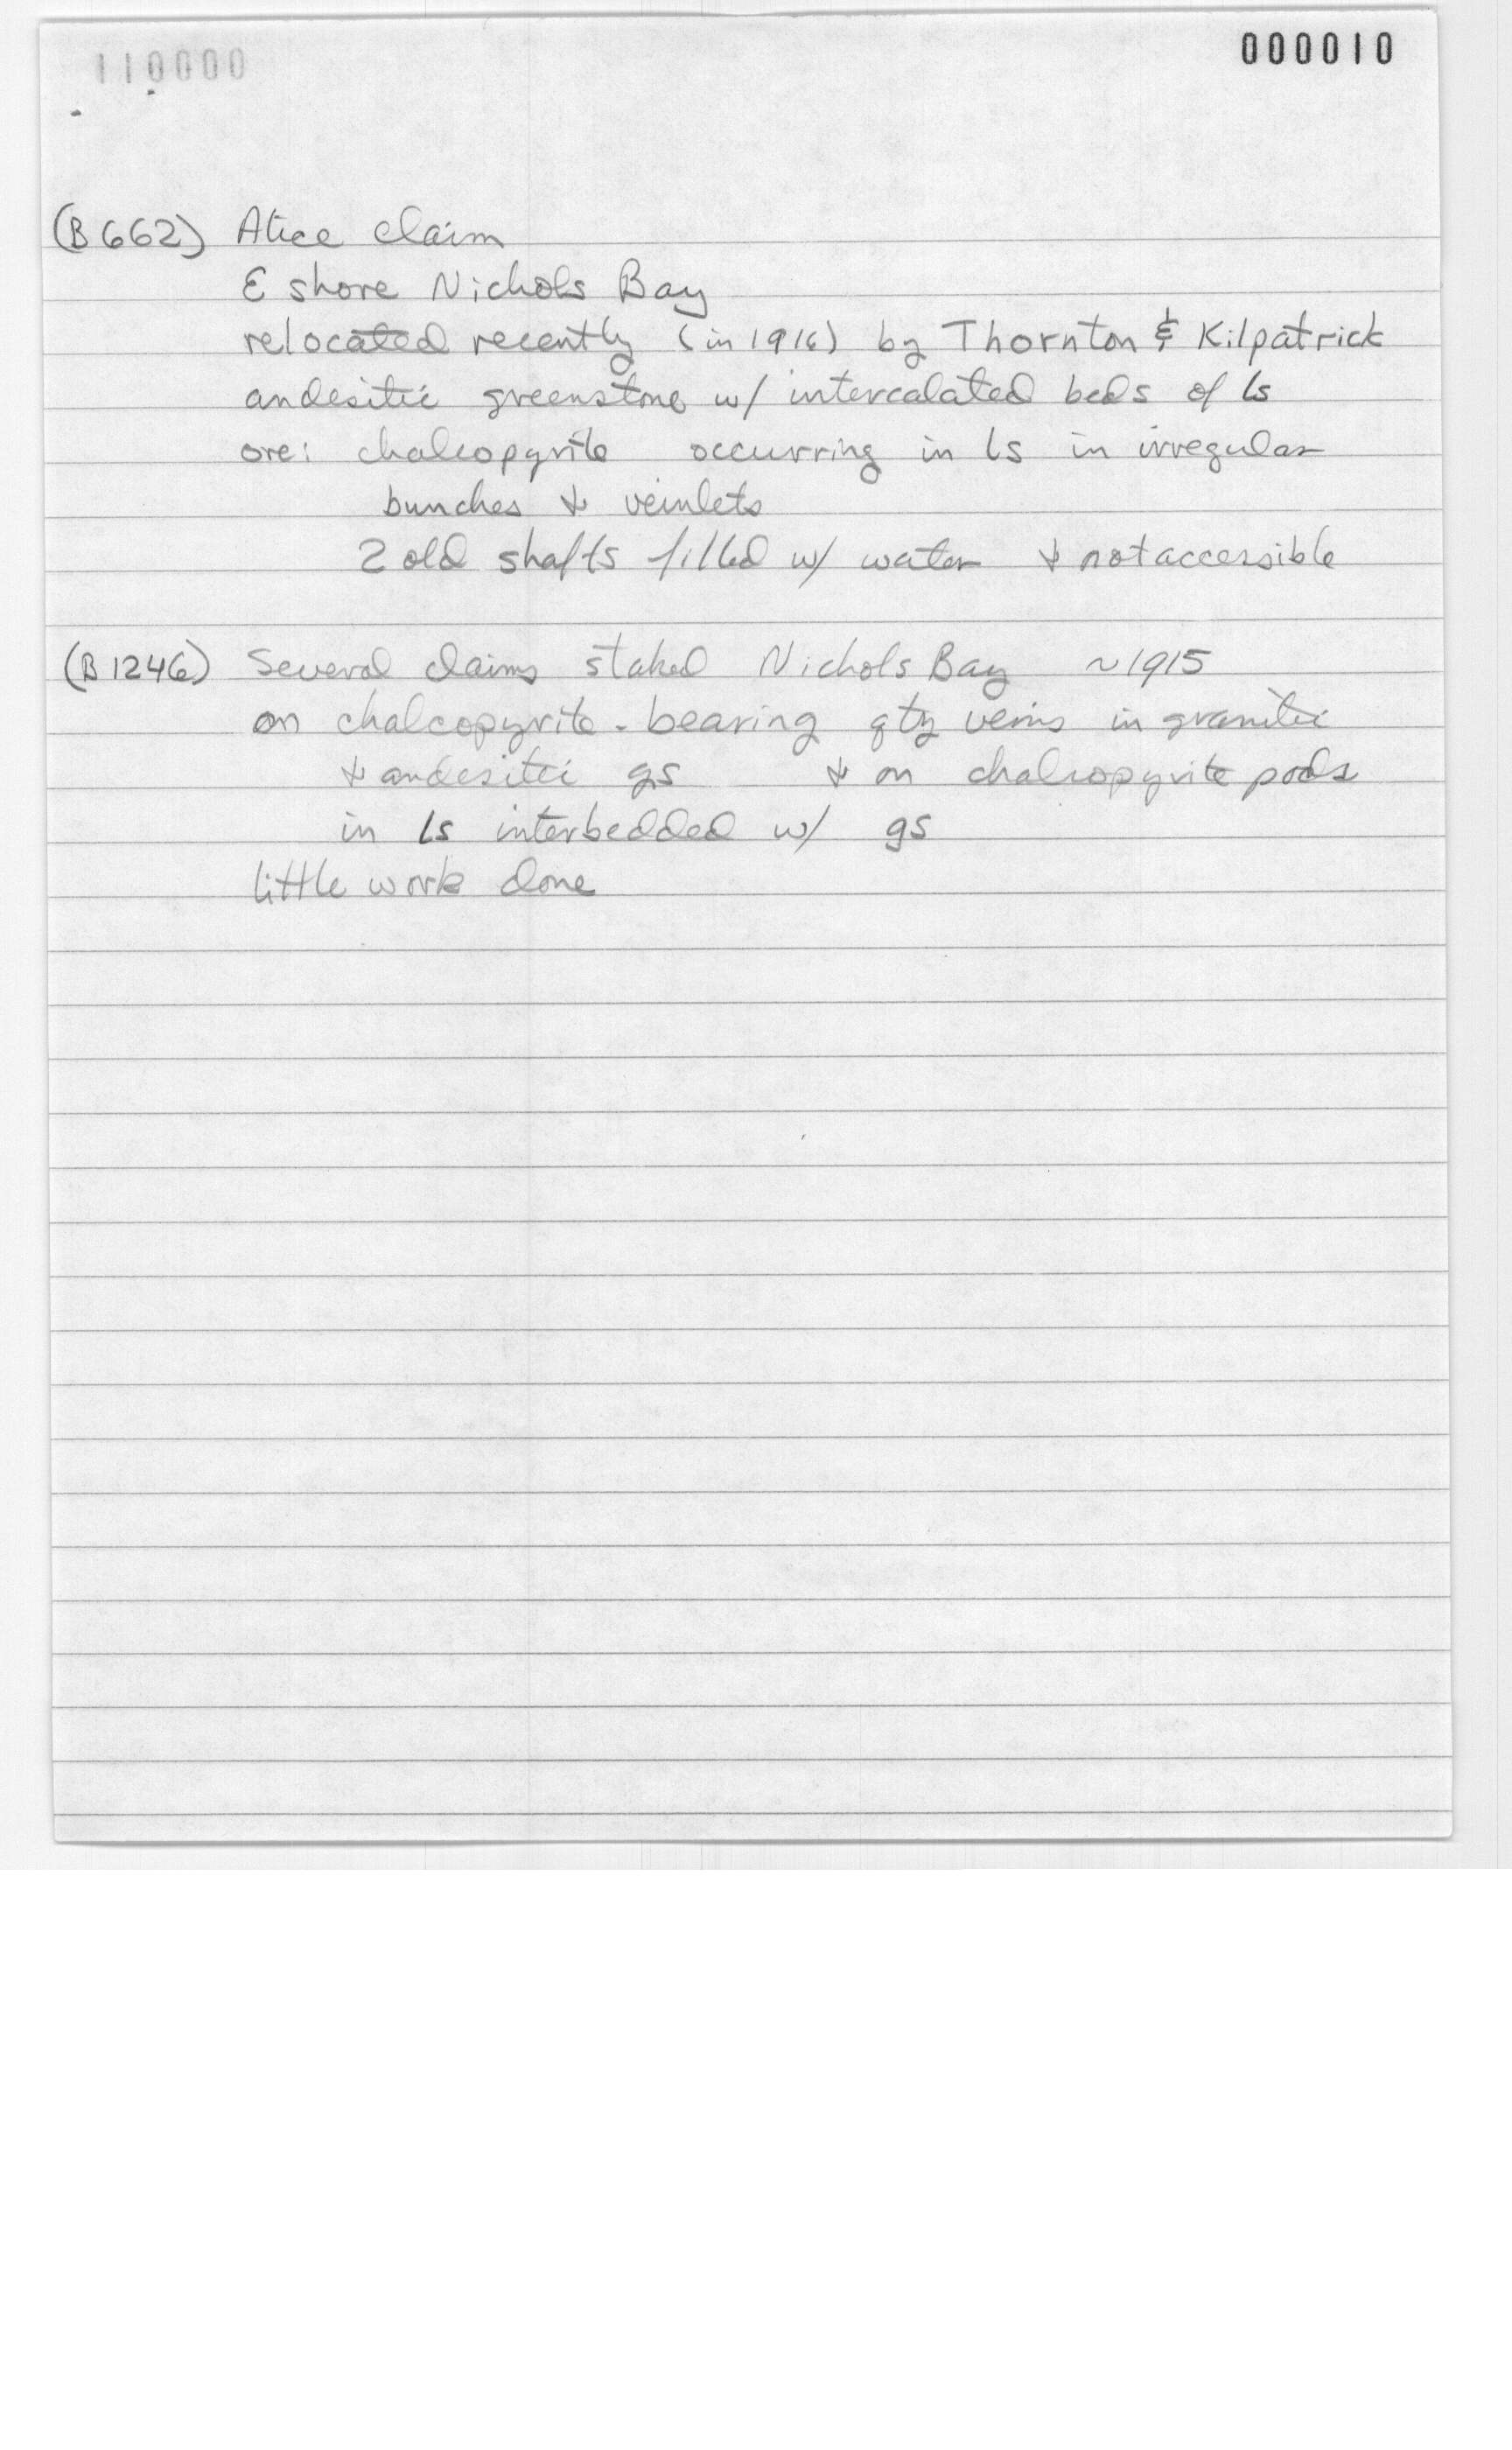 110000
000010
(B662) Alice claim
E shore Nichols Bay
relocated recently (in 1916) by Thornton & Kilpatrick
andesitic greenstone w/ intercalated beds of ls
ore: chalcopyrite occurring in ls in irregular
bunches & veinlets
2 old shafts filled w/ water & not accessible
(B1246) Several claims staked Nichols Bay ~1915
on chalcopyrite-bearing qtz veins in granitic
& andesitic gs & on chalcopyrite pods
in ls interbedded w/ gs
little work done